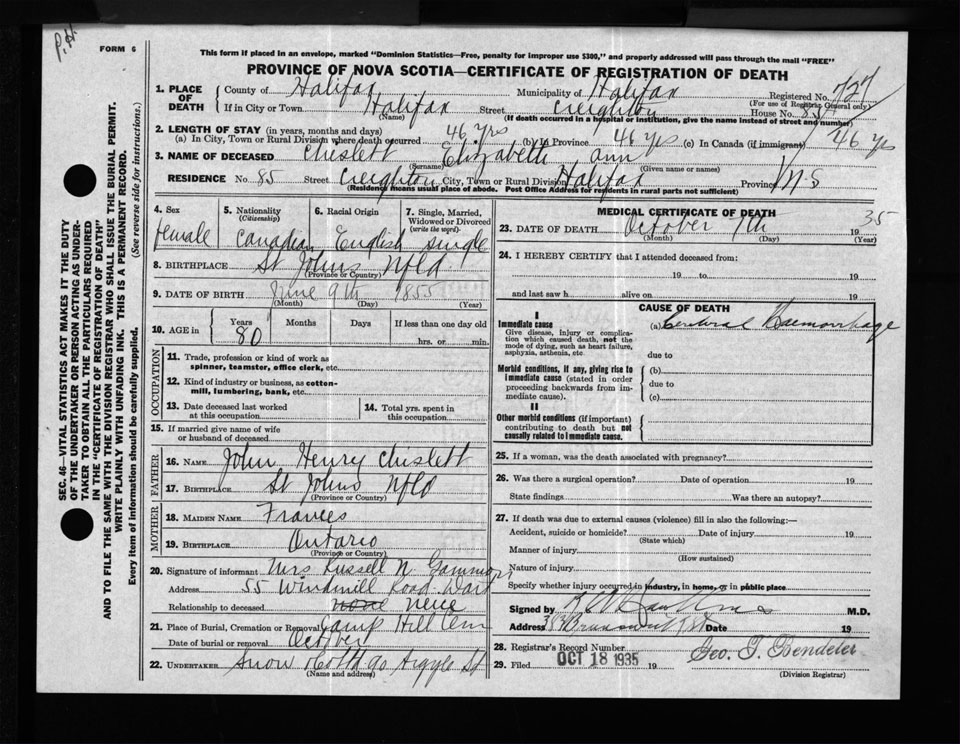 P.H.
FORM 6
This form if placed in an envelope, marked "Dominion Statistics—Free, penalty for improper use $300," and properly addressed will pass through the mail "FREE"
PROVINCE OF NOVA SCOTIA—CERTIFICATE OF REGISTRATION OF DEATH
1. PLACE OF DEATH County of Halifax Municipality of Halifax Registered No. 727
(For use of Registrar General only)
If in City or Town Halifax Street Creighton House No. 85
(Name) (If death occurred in a hospital or institution, give the name instead of street and number)
2. LENGTH OF STAY (in years, months and days)
(a) In City, Town or Rural Division where death occurred 46 yrs (b) In Province 46 yrs (c) In Canada (if immigrant) 46 yrs
3. NAME OF DECEASED Chislett Elizabeth ann
(Surname) (Given name or names)
RESIDENCE No. 85 Street Creighton City, Town or Rural Division Halifax Province N S
(Residence means usual place of abode. Post Office Address for residents in rural parts not sufficient)
SEC. 46—VITAL STATISTICS ACT MAKES IT THE DUTY
OF THE UNDERTAKER OR PERSON ACTING AS UNDER-
TAKER TO OBTAIN ALL THE PARTICULARS REQUIRED
IN THE "CERTIFICATE OF REGISTRATION OF DEATH"
AND TO FILE THE SAME WITH THE DIVISION REGISTRAR WHO SHALL ISSUE THE BURIAL PERMIT.
WRITE PLAINLY WITH UNFADING INK. THIS IS A PERMANENT RECORD.
Every item of information should be carefully supplied. (See reverse side for instructions.)
4. Sex
female
5. Nationality
(Citizenship)
Canadian
6. Racial Origin
English
7. Single, Married,
Widowed or Divorced
(write the word)
single
8. BIRTHPLACE St Johns Nfld.
(Province or Country)
9. DATE OF BIRTH June 9th 1855
(Month) (Day) (Year)
10. AGE in Years Months Days If less than one day old
80 hrs. or min.
OCCUPATION
11. Trade, profession or kind of work as
spinner, teamster, office clerk, etc.
12. Kind of industry or business, as cotton-
mill, lumbering, bank, etc.
13. Date deceased last worked
at this occupation
14. Total yrs. spent in
this occupation
15. If married give name of wife
or husband of deceased
FATHER
16. NAME John Henry Chislett
17. BIRTHPLACE St Johns Nfld
(Province or Country)
MOTHER
18. MAIDEN NAME Frances
19. BIRTHPLACE Ontario
(Province or Country)
20. Signature of informant Mrs Russell N. Gammon
Address 55 Windmill Road Dart
Relationship to deceased none neice
21. Place of Burial, Cremation or Removal Camp Hill Cem
Date of burial or removal October
22. UNDERTAKER Snow Co Ltd 90 Argyle St
(Name and address)
MEDICAL CERTIFICATE OF DEATH
23. DATE OF DEATH October 7th 1935
(Month) (Day) (Year)
24. I HEREBY CERTIFY that I attended deceased from:
19 to 19
and last saw h alive on 19
CAUSE OF DEATH
I
Immediate cause
Give disease, injury or complica-
tion which caused death, not the
mode of dying, such as heart failure,
asphyxia, asthenia, etc
(a) Cerebral Haemorrhage
due to
Morbid conditions, if any, giving rise to
immediate cause (stated in order
proceeding backwards from im-
mediate cause).
(b)
due to
(c)
II
Other morbid conditions (if important)
contributing to death but not
causally related to immediate cause.
25. If a woman, was the death associated with pregnancy?
26. Was there a surgical operation? Date of operation 19
State findings Was there an autopsy?
27. If death was due to external causes (violence) fill in also the following:—
Accident, suicide or homicide? Date of injury 19
(State which)
Manner of injury
(How sustained)
Nature of injury
Specify whether injury occurred in industry, in home, or in public place
Signed by M.D.
Address Brunswick St Date 19
28. Registrar's Record Number
29. Filed OCT 18 1935 19 Geo. T. Bendeler
(Division Registrar)